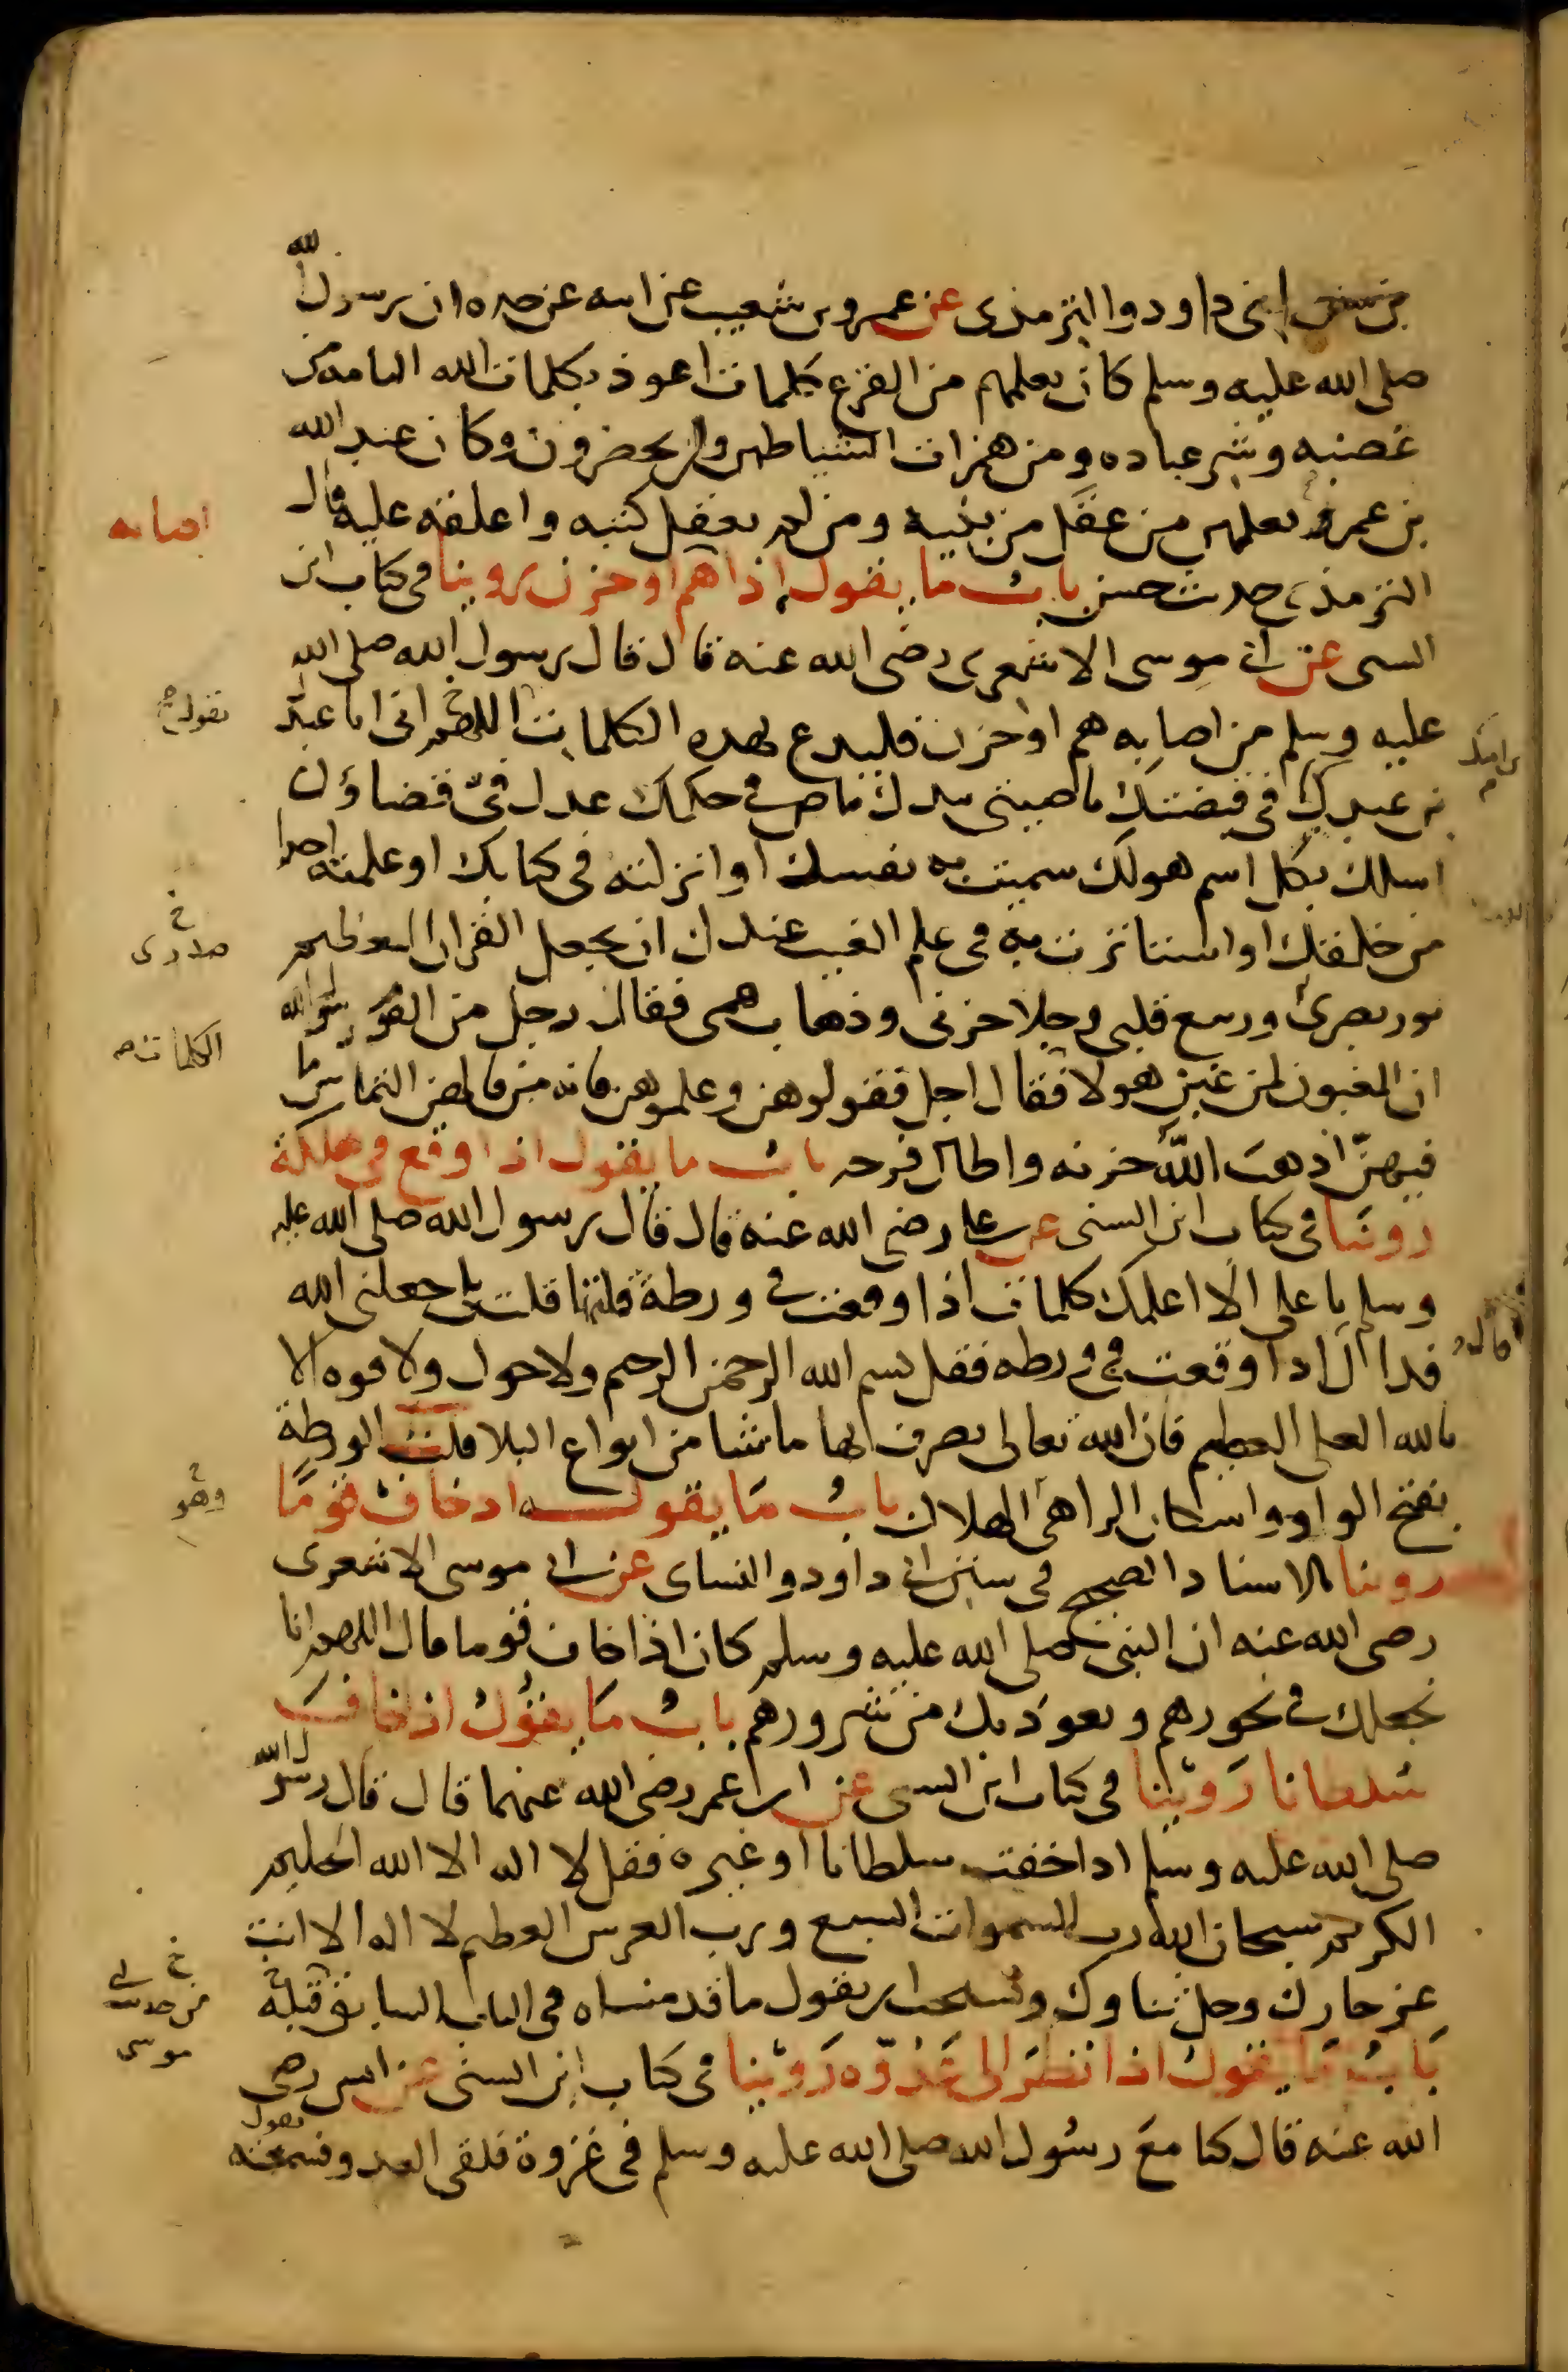 من سنن ابي داود والترمذي عن عمرو بن شعيب عن ابيه عن جده ان رسول الله
صلى الله عليه وسلم كان يعلمهم من الفزع كلمات اعوذ بكلمات الله التامه من
غضبه وشر عباده ومن همزات الشياطين وان يحضرون وكان عبد الله
بن عمرو يعلمهن من عقل من بنيه ومن لم يعقل كتبه واعلقه عليه قال
الترمذي حديث حسن باب ما يقول اذا اهم او حزن روينا في كتاب ابن
السني عن ابي موسى الاشعري رضي الله عنه قال قال رسول الله صلى الله
عليه وسلم من اصابه هم او حزن فليدع بهذه الكلمات اللهم اني انا عبدك
بن عبدك في قبضتك ناصيتي بيدك ماض في حكمك عدل في قضاؤك
اسالك بكل اسم هو لك سميت به نفسك او انزلته في كتابك او علمته احدا
من خلقك او استاثرت به في علم الغيب عندك ان تجعل القران العظيم
نور بصري وربيع قلبي وجلا حزني وذهاب همي فقال رجل من القوم يرسول الله
ان المغبون لمن غبن هولا فقال اجل فقولوهن وعلموهن فانه من قالهن التماس ما
فيهنّ اذهب اللّه حزنه واطال فرحه باب ما يقول اذا وقع في هلكة
روينا في كتاب ابن السني عن علي رضي الله عنه قال قال رسول الله صلى الله عليه
وسلم يا علي الا اعلمك كلمات اذا وقعت في ورطة قلتها قلت بلى جعلني الله
فداك قال اذا وقعت في ورطه فقل بسم الله الرحمن الرحيم ولا حول ولا قوه الا
بالله العلي العظيم فان الله تعالى يصرف بها ما شا من انواع البلا قلت الورطة
بفتح الواو واسكان الرا هي الهلاك باب ما يقول اذ خاف قومًا
روينا بالاسناد الصحيح في سنن ابي داود والنساي عن ابي موسى الاشعري
رضي الله عنه ان النبي صلى الله عليه وسلم كان اذا خاف قوما قال اللهم انا
نجعلك في نحورهم ونعوذ بك من شرورهم باب ما يقول اذ خاف
سلطانا روينا في كتاب ابن السني عن ابن عمر رضي الله عنهما قال قال رسول الله
صلى الله عليه وسلم اذا خفت سلطانا او غيره فقل لا اله الا الله الحليم
الكريم سبحان الله رب السموات السبع ورب العرش العظيم لا اله الا انت
عز جارك وجل ثناوك ويستحب ان يقول ما قدمناه في الباب السابق قبله
باب ما يقول اذا نظر الى عدوّه روينا في كتاب ابن السني عن انس رضي
الله عنه قال كنا مع رسول الله صلى الله عليه وسلم في غزوة فلقي العدو فسمعته يقول
اصابه
يقول
بن امتك
خ
صدري
الكلمات
قال
وهو
خ
من حديث ابي
موسى